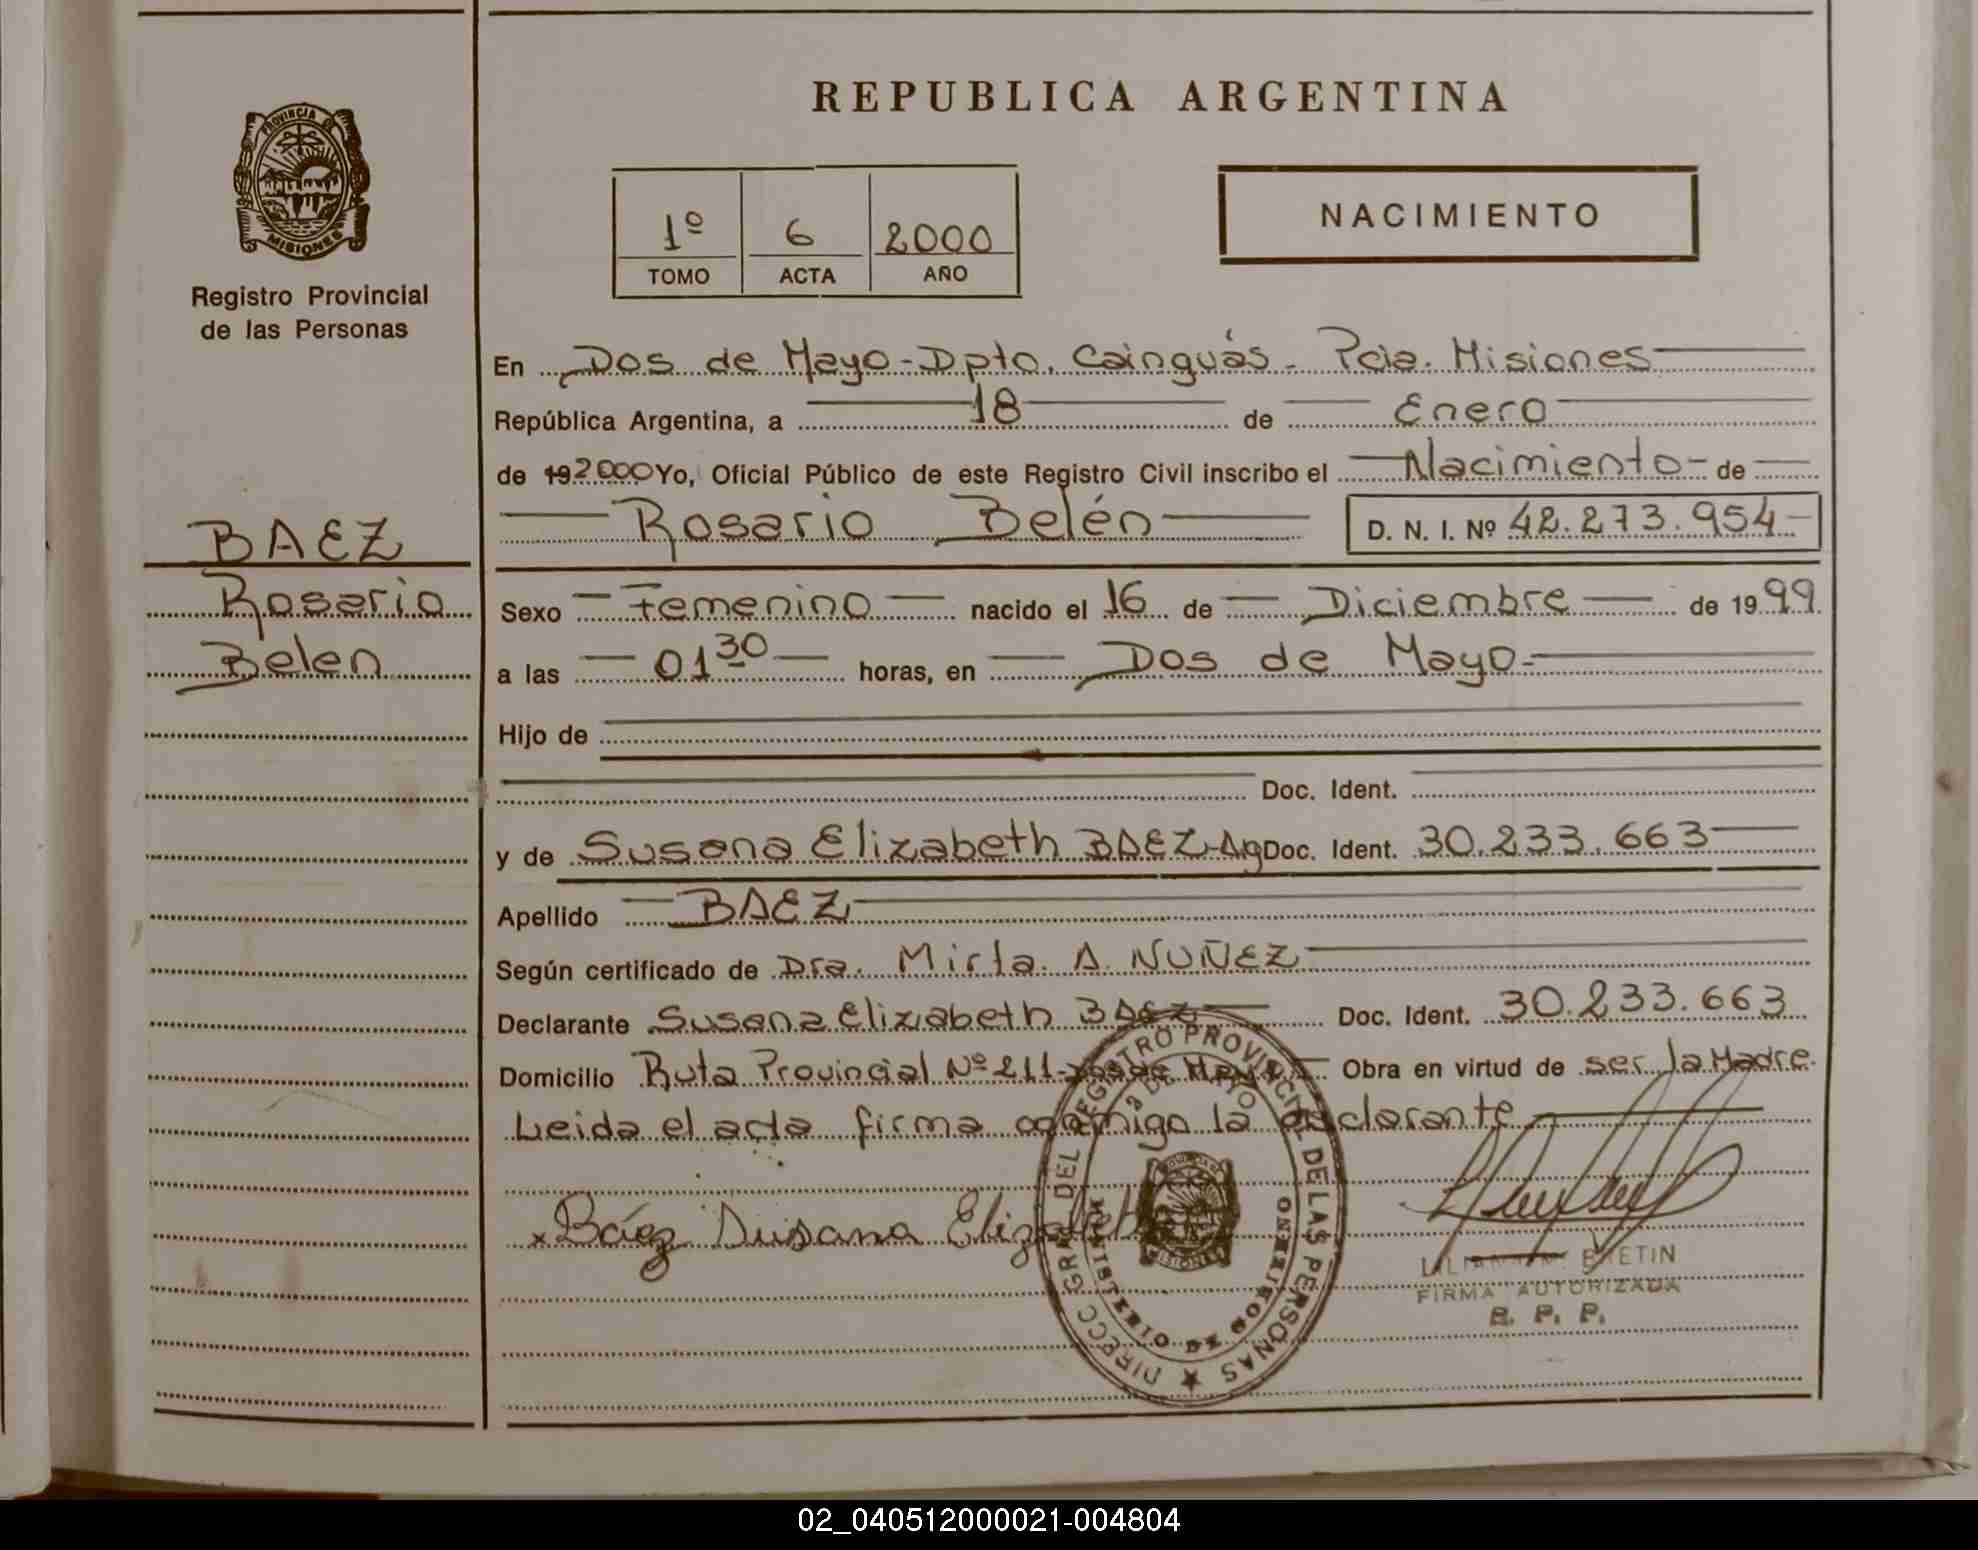 REPUBLICA ARGENTINA
PROVINCIA DE
MISIONES
Registro Provincial
de las Personas
1º 6 2000
TOMO ACTA AÑO
NACIMIENTO
En Dos de Mayo - Dpto. Cainguás - Pcia. Misiones
República Argentina, a 18 de Enero
de 192000 Yo, Oficial Público de este Registro Civil inscribo el Nacimiento de
Rosario Belén D. N. I. Nº 42.273.954
BAEZ
Rosario
Belen
Sexo Femenino nacido el 16 de Diciembre de 1999
a las 01 30 horas, en Dos de Mayo
Hijo de
Doc. Ident.
y de Susana Elizabeth BAEZ-Ag Doc. Ident. 30.233.663
Apellido BAEZ
Según certificado de Dra. Mirta A. NUÑEZ
Declarante Susana Elizabeth BAEZ Doc. Ident. 30.233.663
Domicilio Ruta Provincial Nº 211-Dos de Mayo Obra en virtud de ser la Madre.
Leida el acta firma conmigo la declarante
x Báez Susana Elizabeth
DIRECC. GRAL. DEL REGISTRO PROVINCIAL DE LAS PERSONAS
MINISTERIO DE GOBIERNO
MISIONES
FIRMA AUTORIZADA
R. P. P.
02_040512000021-004804